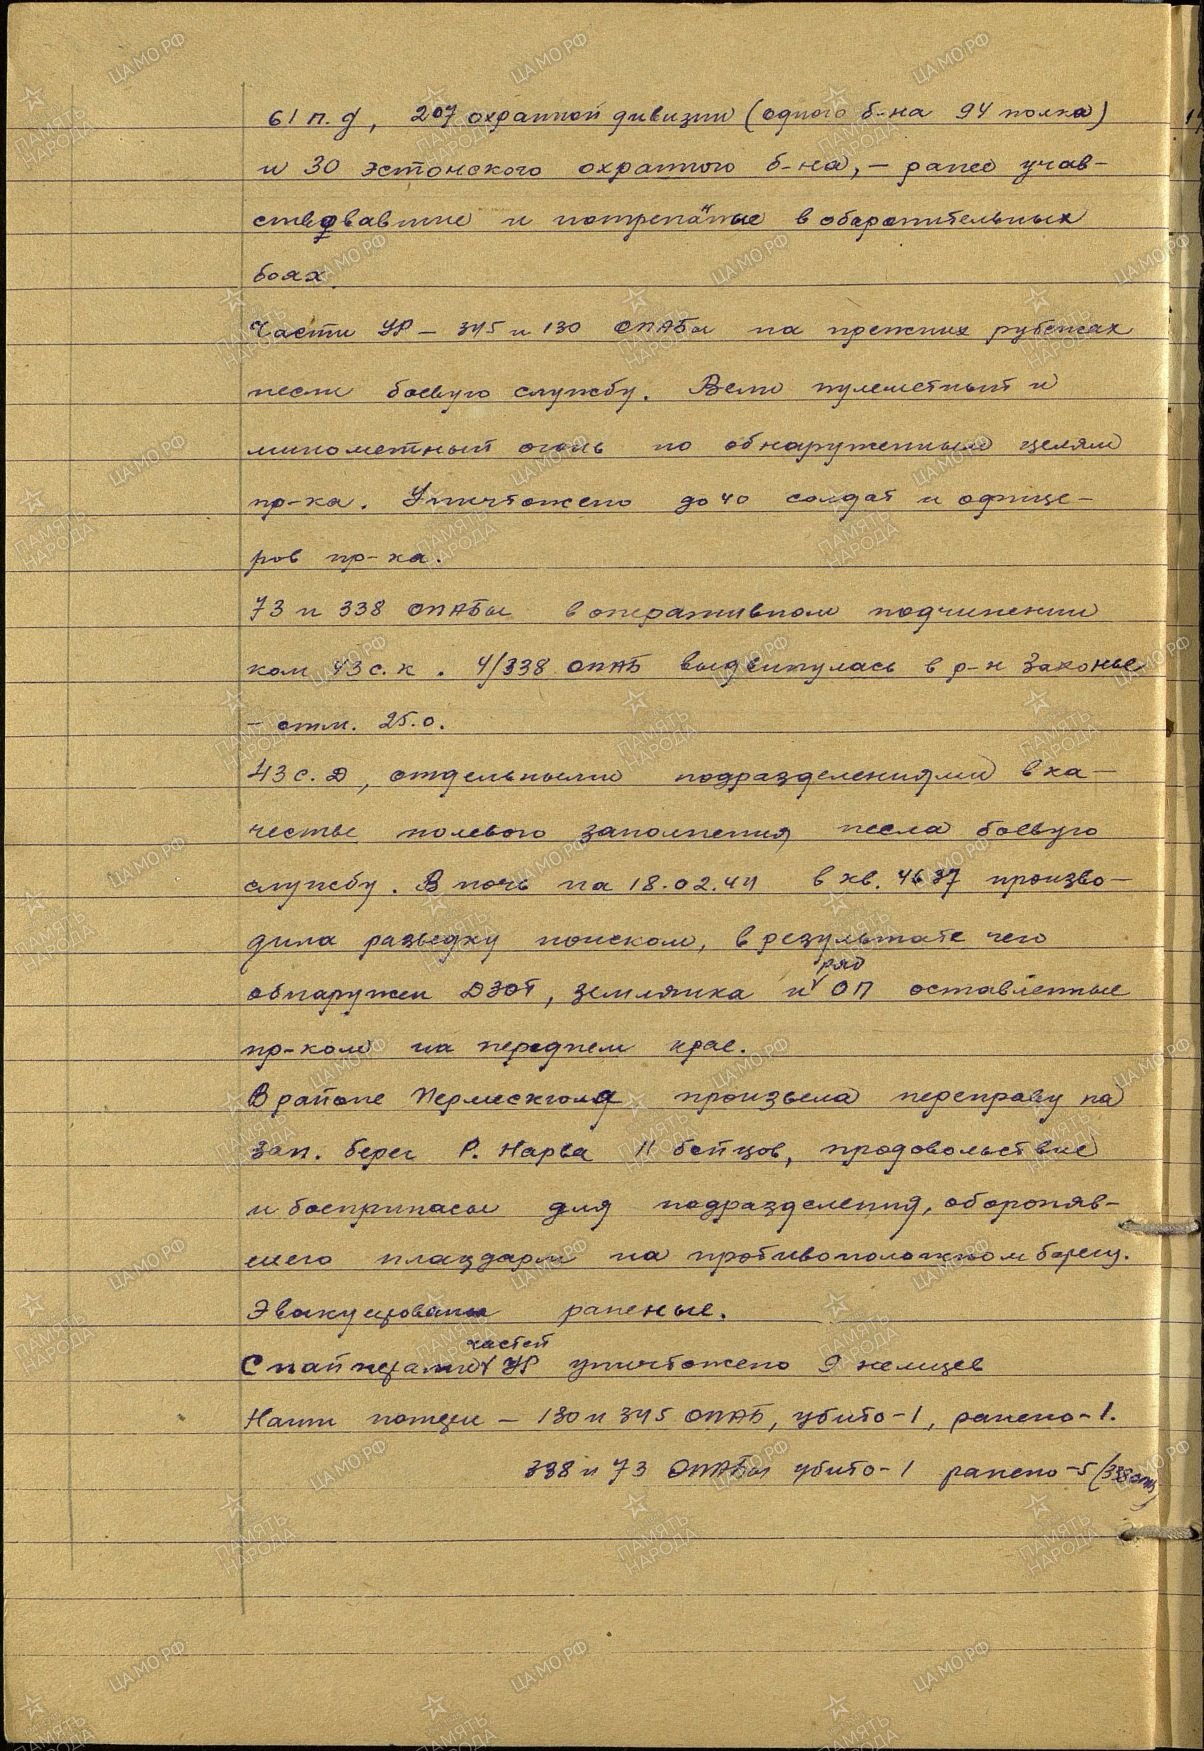 61 п.д, 207 охранной дивизии (одного б-на 94 полка)
и 30 эстонского охранного б-на, – ранее учав-
ствовавшие и потрепаные в оборонительных
боях.
Части УР – 345 и 130 ОПАБы на прежних рубежах
несли боевую службу. Вели пулеметный и
минометный огонь по обнаруженным целям
пр-ка. Уничтожено до 40 солдат и офице-
ров пр-ка.
73 и 338 ОПАБы в оперативном подчинении
ком 43 с.к. 4/338 ОПАБ выдвинулась в р-н Захонье
– отм. 25.0.
43 с.д, отдельными подразделениями в ка-
честве полевого заполнения несла боевую
службу. В ночь на 18.02.44 в кв. 4637 произво-
дила разведку поиском, в результате чего
обнаружен ДЗОТ, землянка и ряд ОП оставленные
пр-ком на переднем крае.
В районе Пермескюля произвела переправу на
зап. берег р. Нарва 11 бойцов, продовольствие
и боеприпасы для подразделения, обороняв-
шего плацдарм на противоположном берегу.
Эвакуированы раненые.
Снайперами частей УР уничтожено 9 немцев
Наши потери – 130 и 345 ОПАБ, убито-1, ранено-1.
338 и 73 ОПАБы убито-1 ранено-5 (338 опаб)